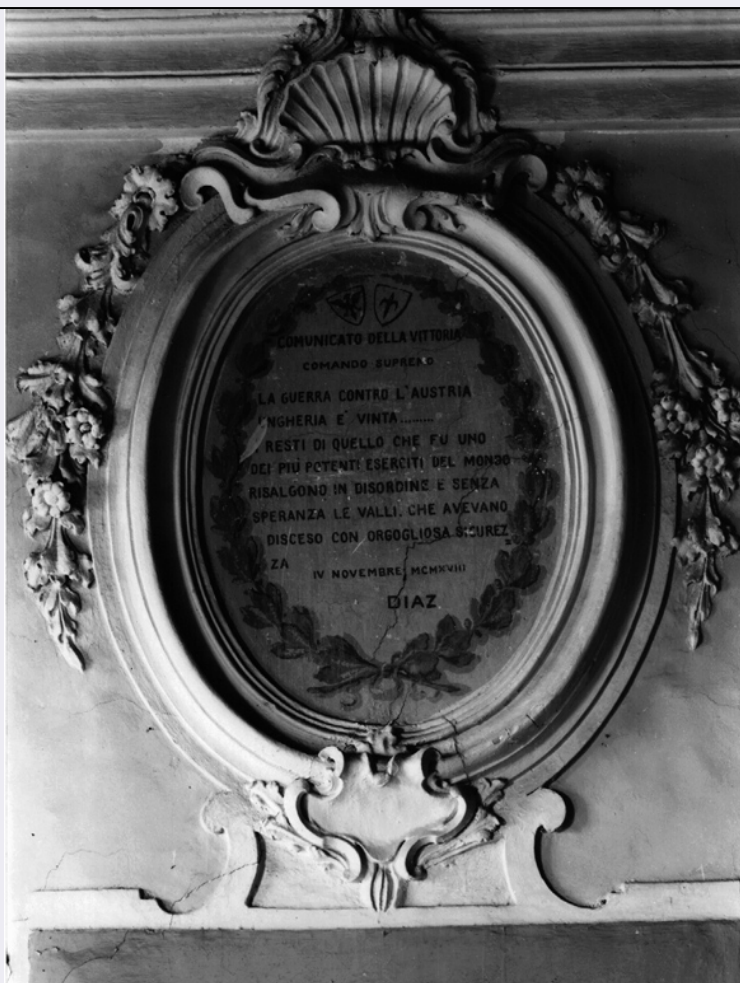 COMUNICATO DELLA VITTORIA
COMANDO SUPREMO
LA GUERRA CONTRO L'AUSTRIA
UNGHERIA E' VINTA.........
I RESTI DI QUELLO CHE FU UNO
DEI PIÚ POTENTI ESERCITI DEL MONDO
RISALGONO IN DISORDINE E SENZA
SPERANZA LE VALLI, CHE AVEVANO
DISCESO CON ORGOGLIOSA SICUREZ
ZA
IV NOVEMBRE MCMXVIII
DIAZ